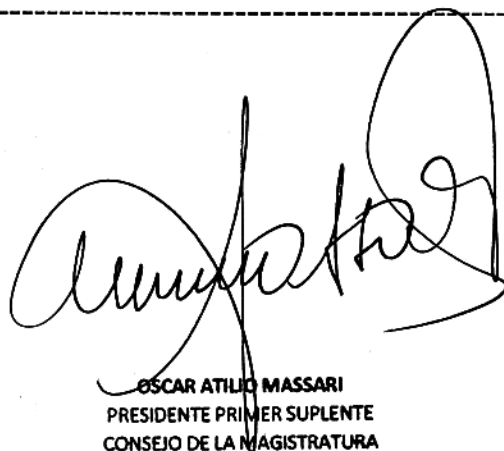 OSCAR ATILIO MASSARI
PRESIDENTE PRIMER SUPLENTE
CONSEJO DE LA MAGISTRATURA